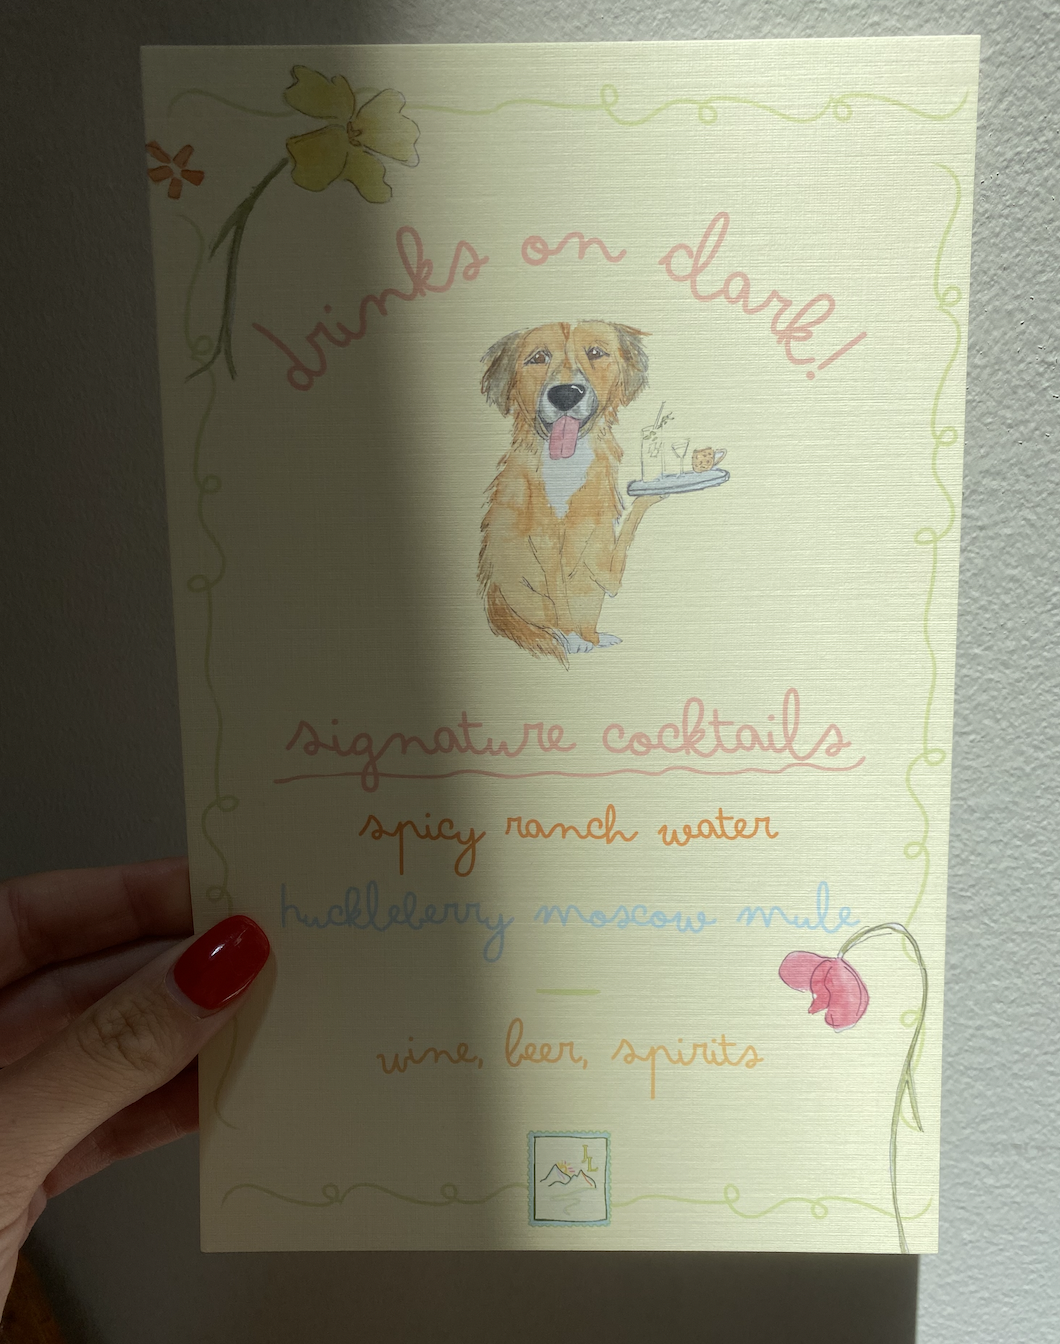 drinks on dark!
signature cocktails
spicy ranch water
huckleberry moscow mule
wine, beer, spirits
JL